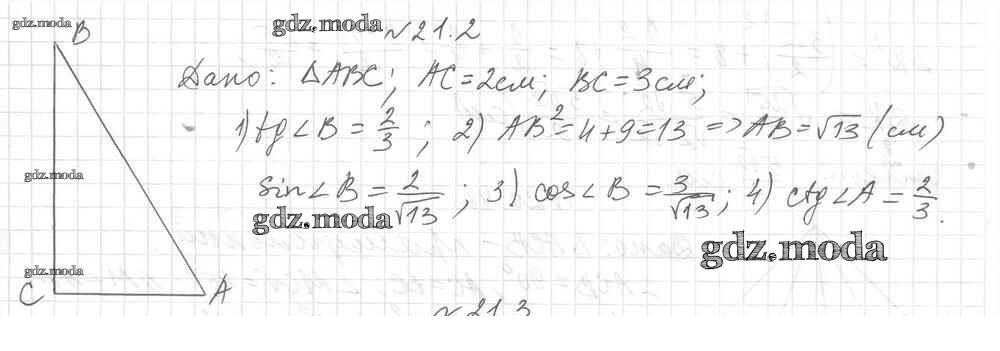 gdz.moda
gdz.moda
№21.2
B
Дано: △ABC; AC=2см; BC=3см;
1) tg∠B = 2/3 ; 2) AB²=4+9=13 => AB=√13 (см)
gdz.moda
sin∠B = 2/√13 ; 3) cos∠B = 3/√13 ; 4) ctg∠A = 2/3.
gdz.moda
gdz.moda
gdz.moda
C
A
№21.3